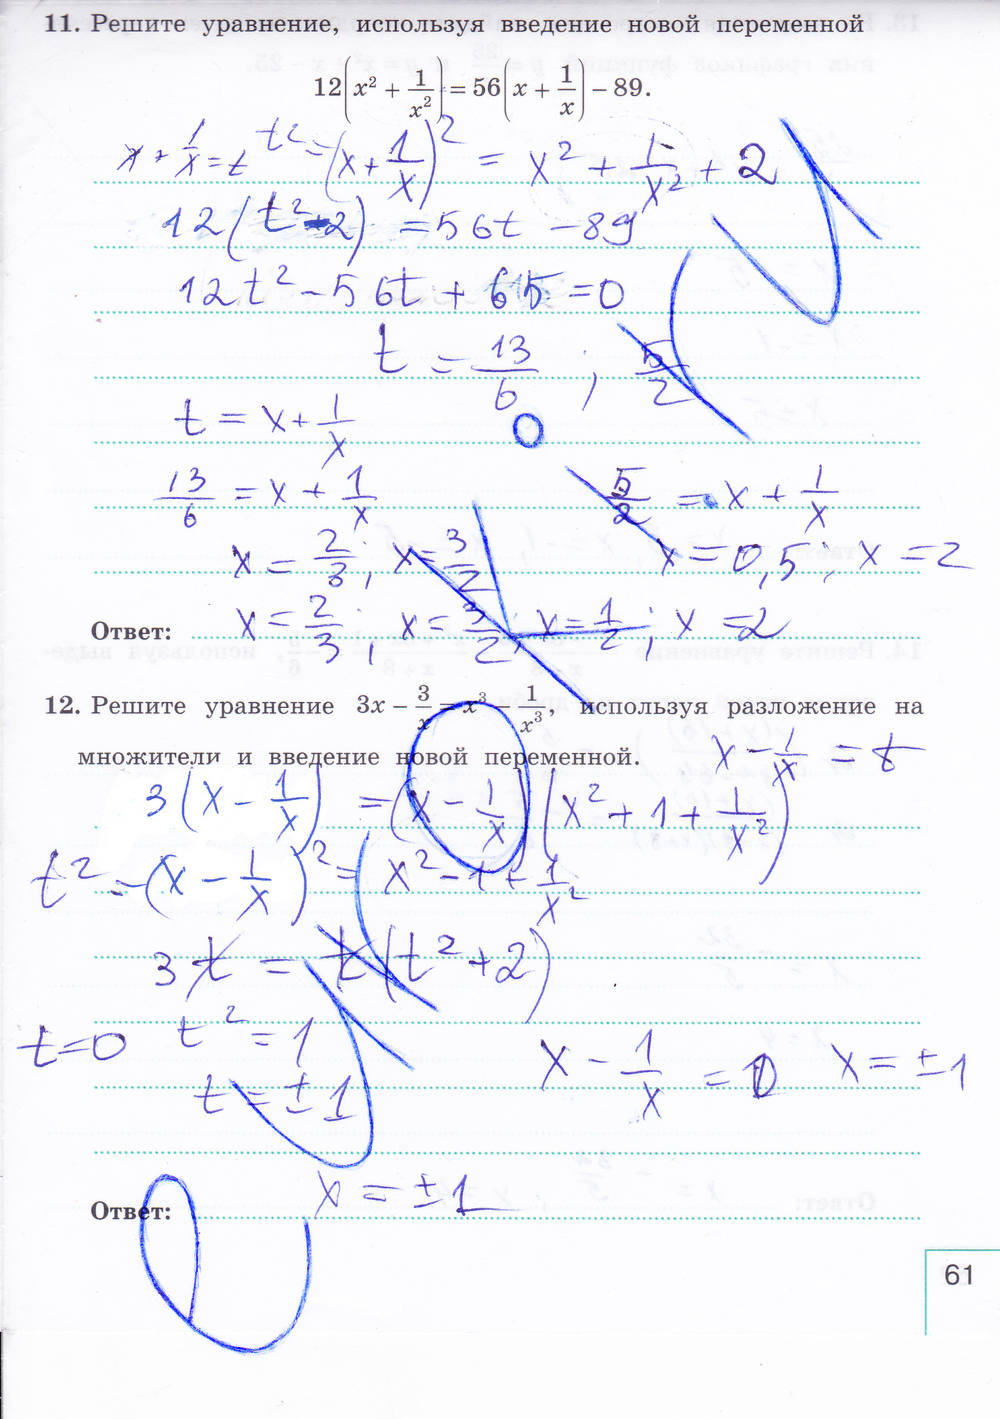 11. Решите уравнение, используя введение новой переменной
12(x² + 1/x²) = 56(x + 1/x) − 89.
x + 1/x = t t² = (x + 1/x)² = x² + 1/x² + 2
12(t² - 2) = 56t − 89
12t² − 56t + 65 = 0
t = 13/6 ; 5/2
t = x + 1/x
13/6 = x + 1/x 5/2 = x + 1/x
x = 2/3 ; x = 3/2 x = 0,5 ; x = 2
Ответ: x = 2/3 ; x = 3/2 x = 1/2 ; x = 2
12. Решите уравнение 3x − 3/x = x³ − 1/x³, используя разложение на
множители и введение новой переменной. x − 1/x = t
3(x − 1/x) = (x − 1/x)(x² + 1 + 1/x²)
t² = (x − 1/x)² = x² − 1 + 1/x²
3t = t(t² + 2)
t = 0 t² = 1
t = ± 1 x − 1/x = 0 x = ± 1
Ответ: x = ± 1
61